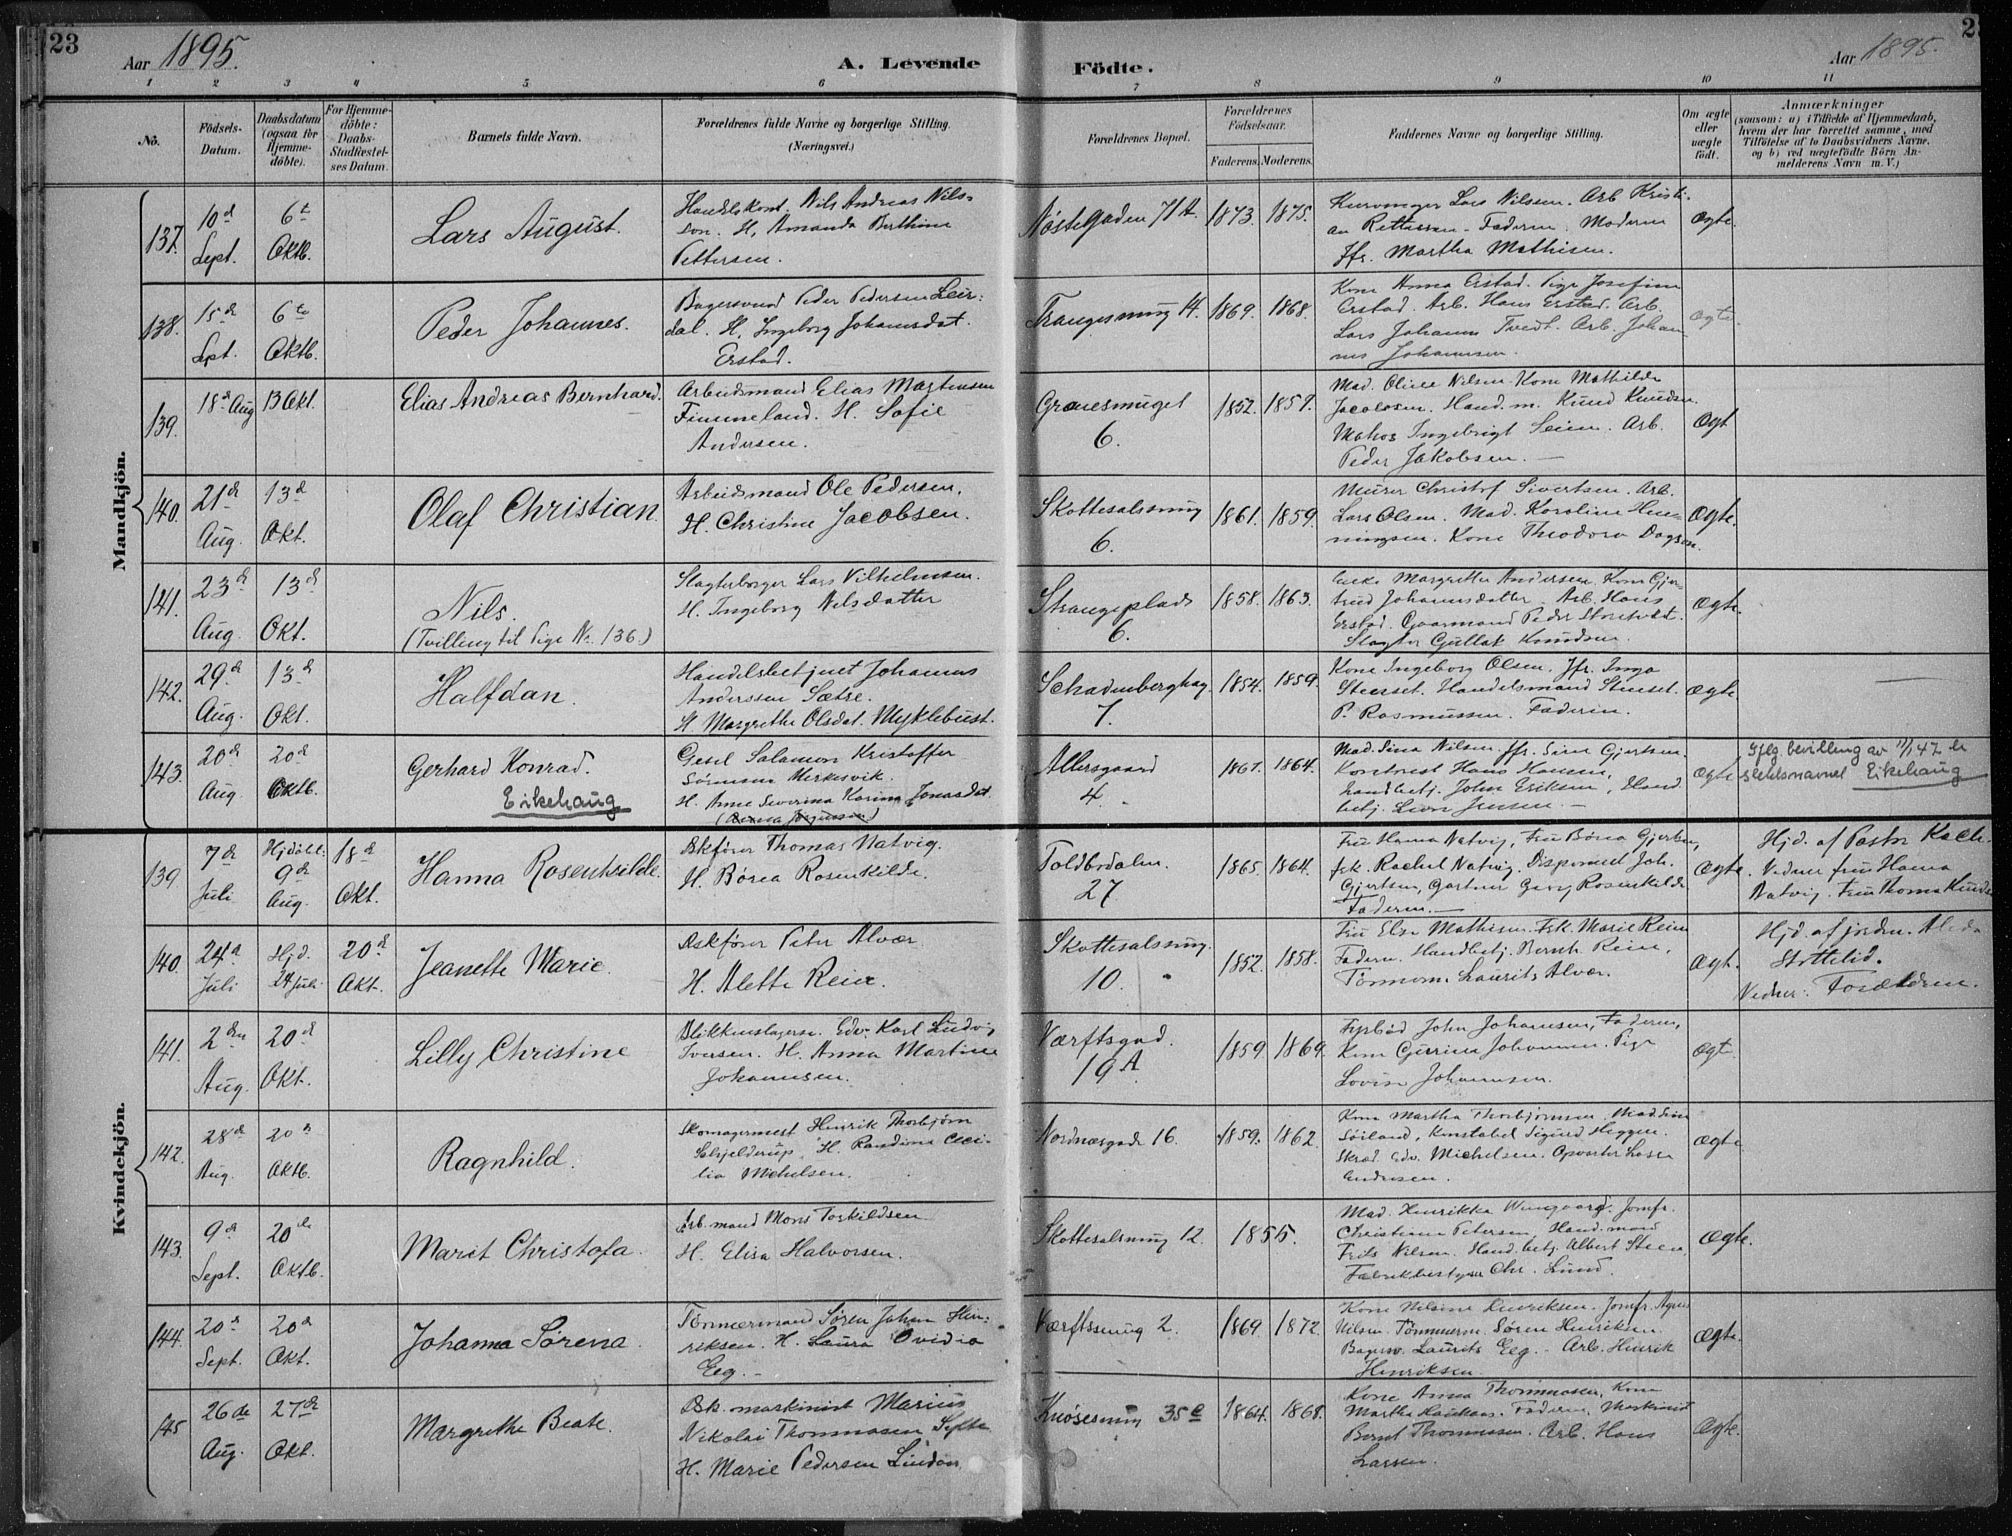 23
Aar 1895.
A. Levende
Födte.
Aar 1895.
2
1 2 3 4 5 6 7 8 9 10 11
No.
Födsels-
Datum.
Daabsdatum
(ogsaa for
Hjemme-
döbte).
For Hjemme-
döbte:
Daabs-
Stadfæstel-
ses Datum.
Barnets fulde Navn.
Forældrenes fulde Navne og borgerlige Stilling.
(Næringsvei.)
Forældrenes Bopæl.
Forældrenes
Födselsaar.
Faderens. Moderens.
Faddernes Navne og borgerlige Stilling.
Om ægte
eller
uægte
födt.
Anmærkninger
(saasom: a) i Tilfælde af Hjemmedaab,
hvem der har forrettet samme, med
Tilföielse af to Daabsvidners Navne,
og b) ved uægtefödte Börn An-
melderens Navn m. V.)
Mandkjön.
137.
10d
Sept.
6te
Oktb.
Lars August.
Handelskont. Nils Andreas Nils-
sen. H. Amanda Berthine
Pettersen.
Nøstegaden 71A.
1873. 1875.
Lars Nilssen. Arb. Kristi-
an Faderen. Moderen
Jfr. Martha Mathisen.
Ægte.
138.
15de
Spt.
6te
Oktb.
Peder Johannes.
Bagersvend Peder Pedersen Leir-
dal. H. Ingeborg Johannsdat.
Erstad.
14.
1869. 1868.
Kone Anna Erstad. Pige Josefine
Erstad. Arb. Hans Erstad. Arb.
Lars Johannes Tvedt. Arb. Johan-
nes Johannesen.
Ægte.
139.
18d Aug
13 Okt.
Elias Andreas Bernhard.
Arbeidsmand Elias Martinsen
Finneland. H. Sofie
Andersen.
6.
1852. 1857.
Mad. Oline Nilsen. Kone Mathilde
Jacobsen. Hand.m. Knud Knudsen.
Ingebrigt Seim. Arb.
Peder Jakobsen. —
Ægt
140.
21de
Aug.
13d
Okt.
Olaf Christian.
Arbeidsmand Ole Pedersen.
H. Christine Jacobsen.
Skottesalsmug
6.
1861. 1859.
Murer Christof Sivertsen. Arb.
Lars Olsen. Mad. Karoline Hen-
ningsen. Kone Theodora
Ægte.
141.
23d
Aug.
13d
Okt.
Nils.
(Tvilling til Pige No. 136.)
Slagterborger Lars Vilhelmsen.
H. Ingeborg Nilsdatter
Strangeplads
6.
1858. 1863.
Enke Margrethe Andersen. Kone Gjer-
trud Johannsdatter. Arb. Hans
Erstad. Gaarmand Peder
Slagter Gullak Knudsen.
Ægte.
142.
29de
Aug.
13d
Okt.
Halfdan.
Handelsbetjent Johannes
Anderssen Sætre.
H. Margrethe Olsdat. Myklebust.
7.
1854. 1859.
Kone Ingeborg Olsen. Jfr. Inga
Handelsmand
P. Rasmussen. Faderen.
Ægte
143.
20de
Aug.
20de
Oktb.
Gerhard Konrad.
Eikehaug
Gesel Salamon Kristoffer
Sørensen
H. Anne Severina Karina Jonasdat.
Allersgaard
4.
1867. 1864.
Mad. Sina Nilsen. Jfr. Sine Gjertsen.
Hans Hansen,
Handbetj. John Eriksen, Hand
betj.
Ægte
Iflg. bevilling av 11/1 47 er
slektsnavnet Eikehaug
Kvindekjön.
139
7de
Juli
Hjdöbt:
9de
Aug.
18d
Okt.
Hanna Rosenkilde.
Bkfører Thomas Natvig.
H. Börea Rosenkilde.
Toldbodalm.
27
1865. 1864.
Fru Hanna Natvig, Fru Börea Gjertsen,
frk. Rachel Natvig. Disponent Joh.
Gjertsen, Gartner Rosenkilde
Faderen. —
Ægte.
Hjd. af Pastor
Vidner fru Hanna
Natvig. Fru Thoma
140.
24d
Juli
Hjd.
24 Juli
20d
Okt.
Jeanette Marie.
Bskfører Peter Alvær.
H. Alette Reier.
Skottesalsmug.
10.
1852. 1858.
Fru Elen Mathisen. Frk. Marie
Faderen. Handbetj. Bernh.
Laurits Alvær.
Ægt.
Hjd. af jordm. Alida
Vidner: Forældrene.
141.
2den
Aug.
20d
Okt.
Lilly Christine
Blikkenslagersv. Edv. Karl Ludvig
Iversen. H. Anna Martine
Johannesen.
Værftsgad.
19A
1859. 1869.
Fyrbød. John Johannesen, Faderen,
Kone Gurine Johannesen. Pige
Lovise Johannesen.
Ægt.
142.
28de
Aug.
20d
Oktb.
Ragnhild.
Skomagermest Henrik Thorbjørn
H. Randine Ceci-
lia Michelsen.
Nordnæsgade 16.
1859. 1862.
Kone Martha Thorbjørnsen. Mad. Sine
Konstabel Sigurd
Skræd. Edv. Michelsen.
Andersen.
Ægte.
143.
9de
Sept.
20de
Oktb.
Marit Christofa.
Arb.mand Mons Torkildsen
H. Elisa Halvorsen.
Skottesalsmug 12.
1855.
Mad. Henrikka Jomfr.
Christiane Petersen. Hand.mand
Frits Nilsen. Hand.betj. Albert Steen,
Fabrikbestyrer Chr. Lund.
Ægte.
144.
20d
Sept.
20d
Okt.
Johanna Sørena.
Tømmermand Søren Johan Hen-
riksen. H. Laura Ovidia
Eeg. —
Værftssmug 2.
1869. 1872.
Kone Nilsine Henriksen. Jomfr. Agnes
Nilsen. Tømmerm. Søren Henriksen
Bagersv. Laurits Eeg. Arb. Henrik
Henriksen.
Ægte.
145
26de
Aug.
27de
Okt.
Margrethe Beate.
Bsk. maskinist Marius
Nikolai Thommasen
H. Marie Pedersen
Knøsesmug 35C.
1864. 1868.
Kone Anna Thommasen, Kone
Martha Faderen. Maskinist
Bernt Thommasen. Arb. Hans
Larsen.
Ægte.